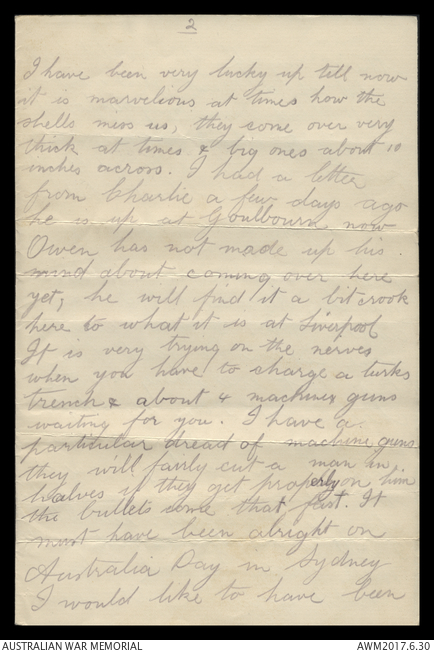 2
I have been very lucky up till now
it is marvelious at times how the
shells miss us, they come over very
thick at times & big ones about 10
inches across. I had a letter
from Charlie a few days ago
he is up at Goulbourn now
Owen has not made up his
mind about coming over here
yet, he will find it a bit crook
here to what it is at Liverpool
It is very trying on the nerves
when you have to charge a turks
trench & about 4 machines guns
waiting for you. I have a
particular dread of machine guns
they will fairly cut a man in
halves if they get properly on him
the bullets come that fast. It
must have been alright on
Australia Day in Sydney
I would like to have been
AUSTRALIAN WAR MEMORIAL
AWM2017.6.30